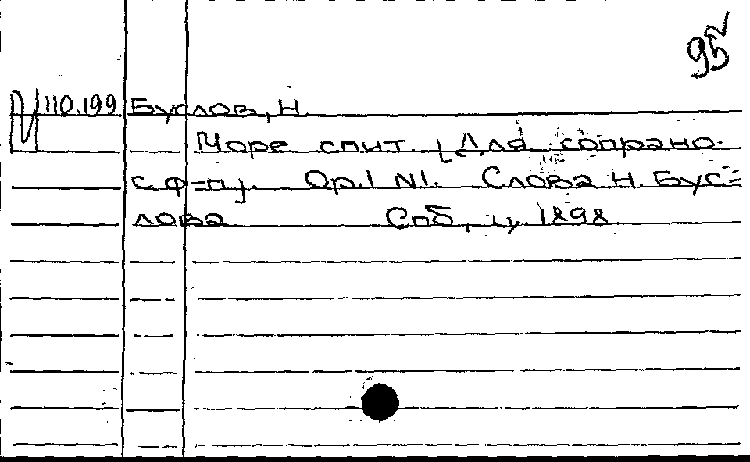 95
110.199 Буслов, Н.
Море спит. [Для сопрано
с ф=п]. Op.1 N1. Слова Н. Бус=
лова Спб, ц. 1898